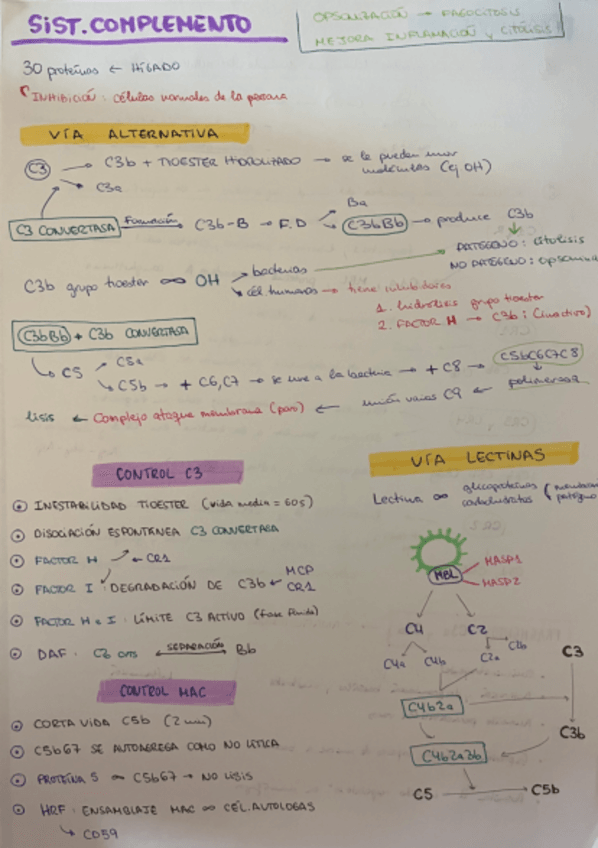 SIST. COMPLEMENTO
OPSONIZACIÓN → FAGOCITOSIS
MEJORA INFLAMACIÓN y CITÓLISIS
30 proteínas ← HÍGADO
INHIBICIÓN: células normales de la persona
VÍA ALTERNATIVA
C3 → C3b + TIOESTER HIDROLIZADO → se le pueden unir
moléculas (ej OH)
C3a
Ba
C3 CONVERTASA Formación → C3b-B → F.D → C3bBb → produce C3b
PATÓGENO: citólisis
NO PATÓGENO: opsoniza
C3b grupo tioester ∞ OH → bacterias
cél. humanas → tiene inhibidores
1. hidrólisis grupo tioester
2. FACTOR H → C3b: (inactivo)
C3bBb + C3b CONVERTASA
C5 → C5a
C5b → + C6, C7 → se une a la bacteria → + C8 → C5bC6C7C8
polimerosa
lisis ← Complejo ataque membrana (poro) ← unión varias C9 ←
CONTROL C3
INESTABILIDAD TIOESTER (vida media = 60s)
DISOCIACIÓN ESPONTÁNEA C3 CONVERTASA
FACTOR H ← CR1
FACTOR I: DEGRADACIÓN DE C3b ← MCP
CR1
FACTOR H e I: LÍMITE C3 ACTIVO (fase fluida)
DAF: SEPARACIÓN Bb
CONTROL MAC
CORTA VIDA C5b (2 min)
C5b67 SE AUTOAGREGA COMO NO LÍTICA
PROTEÍNA S ∞ C5b67 → NO LISIS
HRF: ENSAMBLAJE MAC ∞ CÉL. AUTOLOGAS
CD59
VÍA LECTINAS
Lectina ∞ glicoproteínas
carbohidratos (membrana
patógeno
MBL
MASP1
MASP2
C4 C2
C4a C4b C2a C2b
C3
C4b2a
C3b
C4b2a3b
C5 → C5b